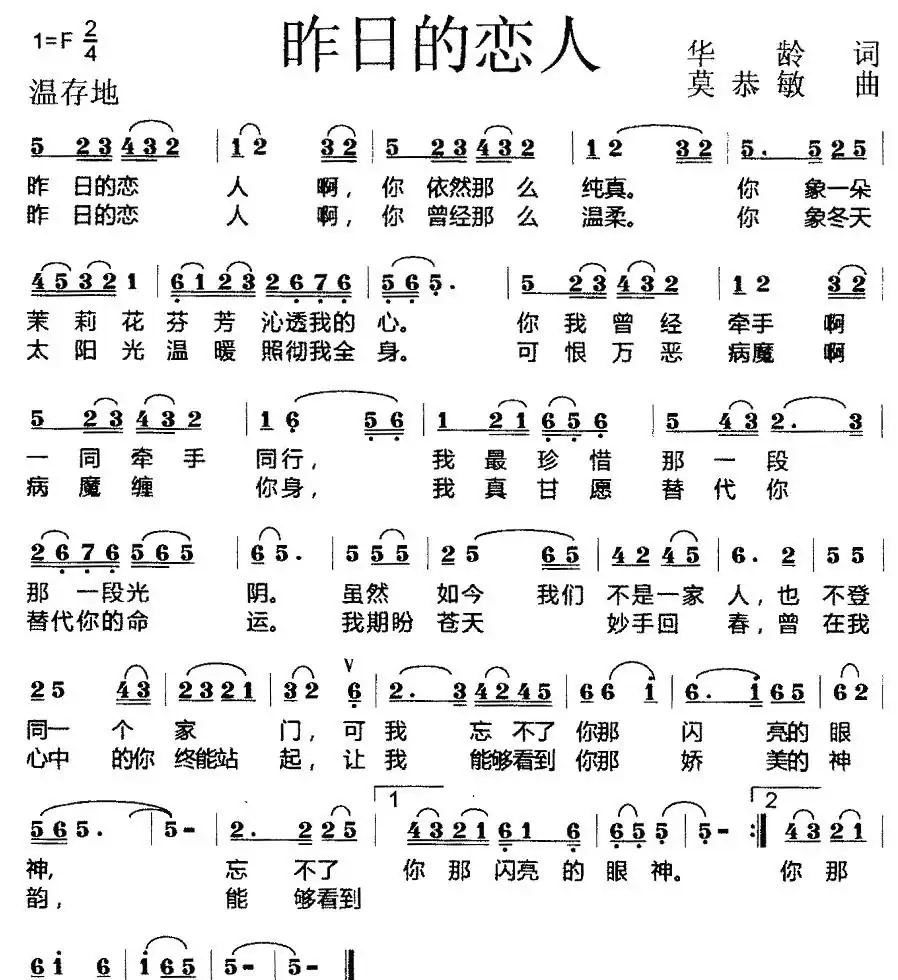 昨日的恋人
1=F 2/4
华龄 词
温存地
莫恭敏 曲
5 23 432 | 12 32 | 5 23 432 | 12 32 | 5. 525 |
昨 日的恋 人 啊, 你 依然那 么 纯真。 你 象一朵
昨 日的恋 人 啊, 你 曾经那 么 温柔。 你 象冬天
45321 | 6123 2676 | 565. | 5 23 432 | 12 32 |
茉莉花芬芳沁透我的心。 你我曾经牵手啊
太阳光温暖照彻我全身。 可恨万恶病魔啊
5 23 432 | 16 56 | 1 21 656 | 5 43 2. 3 |
一同牵手同行, 我最珍惜那一段
病魔缠你身, 我真甘愿替代你
2676 565 | 65. | 555 | 25 65 | 42 45 | 6. 2 | 55
那一段光阴。 虽然如今我们不是一家人,也不登
替代你的命运。 我期盼苍天妙手回春,曾在我
25 43 | 2321 | 32 ∨ 6 | 2. 3 4245 | 66 i | 6. i 65 | 62
同一个家门,可我忘不了你那闪亮的眼
心中的你终能站起,让我能够看到你那娇美的神
565. | 5- | 2. 225 | 1 4321 61 6 | 655 | 5- :‖ 2 43 21
神, 忘不了你那闪亮的眼神。 你那
韵, 能够看到
6i 6 | i65 | 5- | 5- ‖